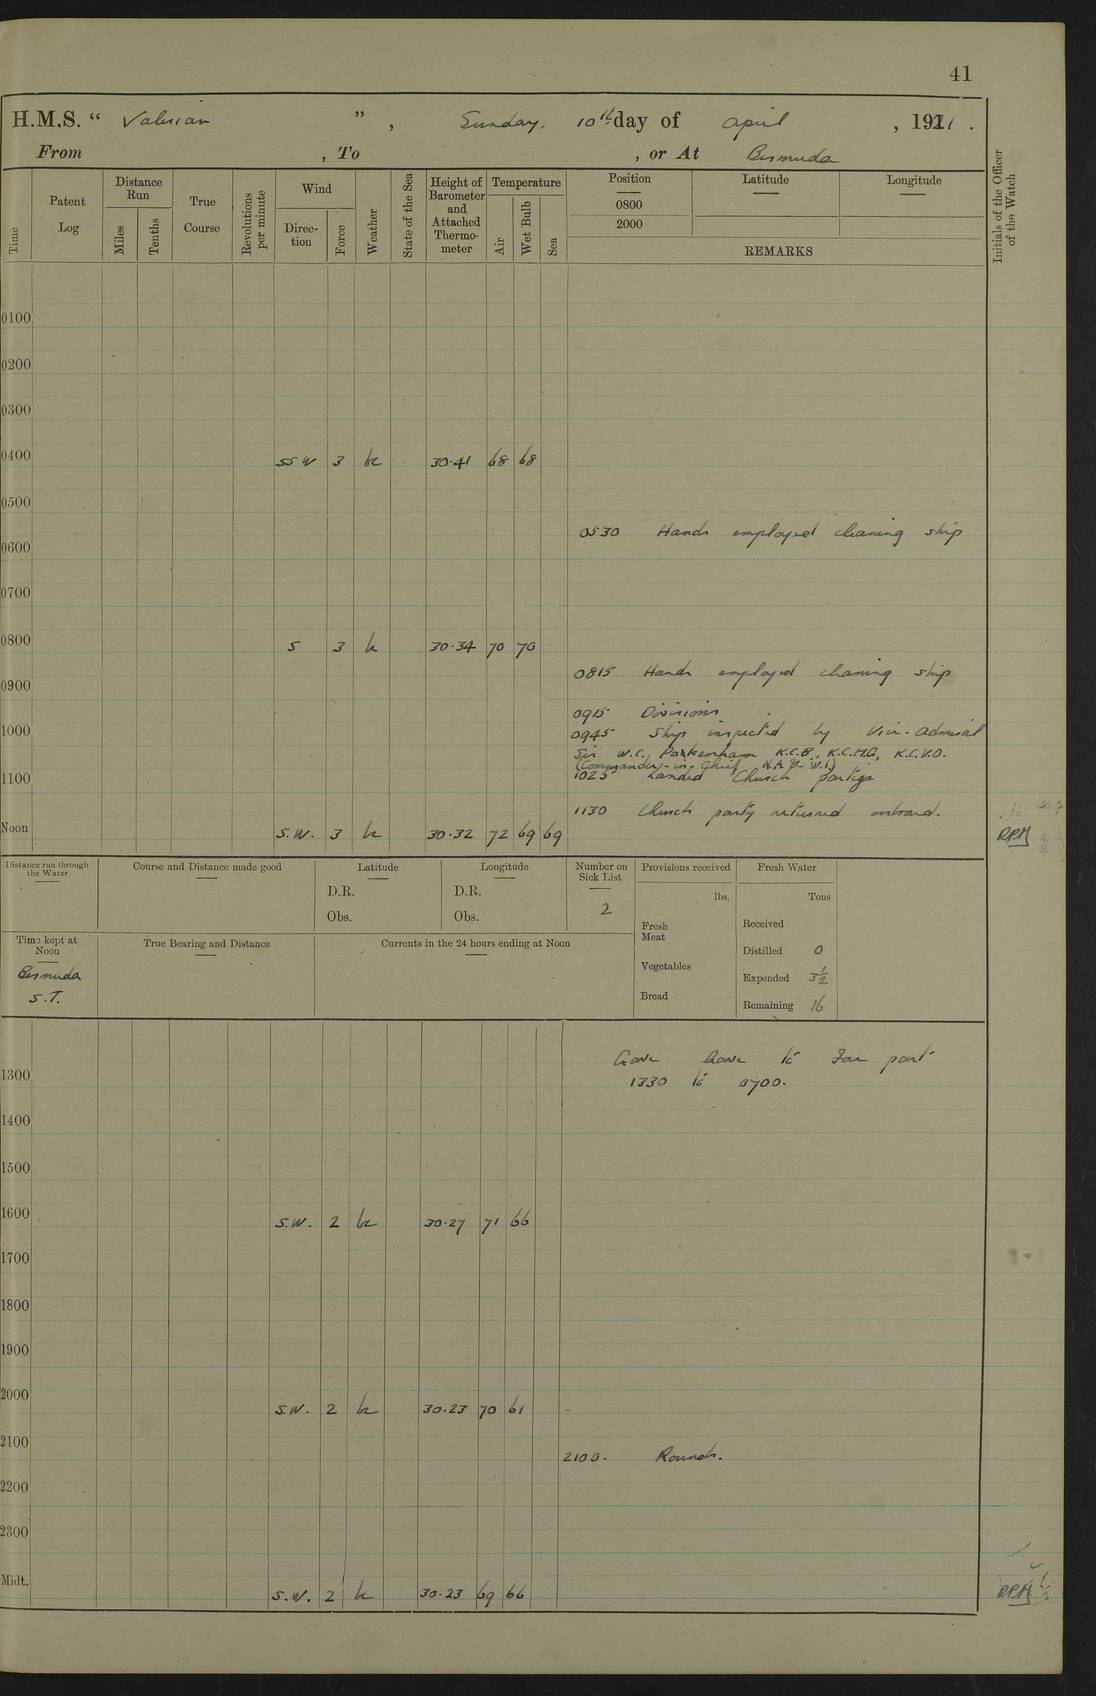 41
H.M.S. “ Valerian ” , Sunday, 10th day of April , 1921 .
From , To , or At Bermuda
Time
Patent Log
Distance Run
Miles
Tenths
True Course
Revolutions per minute
Wind
Direction
Force
Weather
State of the Sea
Height of Barometer and Attached Thermometer
Temperature
Air
Wet Bulb
Sea
Position
0800
2000
Latitude
Longitude
REMARKS
Initials of the Officer of the Watch
0100
0200
0300
0400 SSW 3 bc 30.41 68 68
0500
0530 Hands employed cleaning ship
0600
0700
0800 S 3 bc 30.34 70 70
0815 Hands employed cleaning ship
0900
0915 Divisions
0945 Ship inspected by Vice-Admiral
1000
Sir W.C. Pakenham K.C.B., K.C.M.G, K.C.V.O.
(Commander-in-Chief N.A & W.I)
1025 Landed Church parties
1100
1130 Church party returned onboard.
Noon S.W. 3 bc 30.32 72 69 69 RPM
Distance run through the Water
Course and Distance made good
Latitude
D.R.
Obs.
Longitude
D.R.
Obs.
Number on Sick List
2
Provisions received
lbs.
Fresh Meat
Vegetables
Bread
Fresh Water
Tons
Received
Distilled 0
Expended 3½
Remaining 16
Time kept at Noon
Bermuda
S.T.
True Bearing and Distance
Currents in the 24 hours ending at Noon
Gave leave to part
1330 to 0700.
1300
1400
1500
1600 S.W. 2 bc 30.27 71 66
1700
1800
1900
2000 S.W. 2 bc 30.23 70 61
2100
2100. Rounds.
2200
2300
Midt. S.W. 2 bc 30.23 69 66 RPM